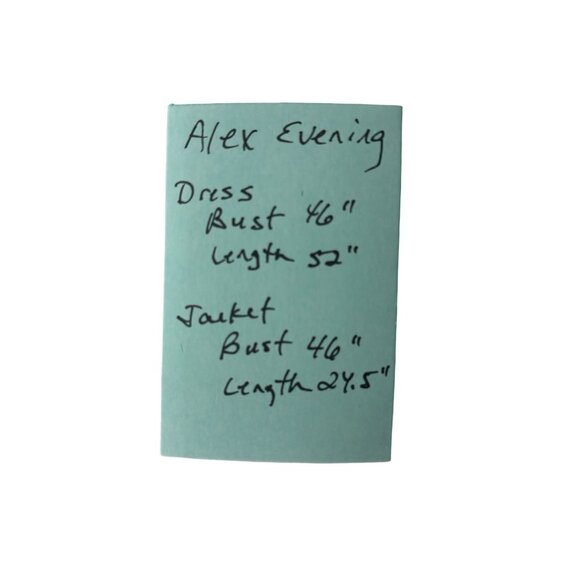 Alex Evening
Dress
Bust 46"
Length 52"
Jacket
Bust 46"
Length 24.5"